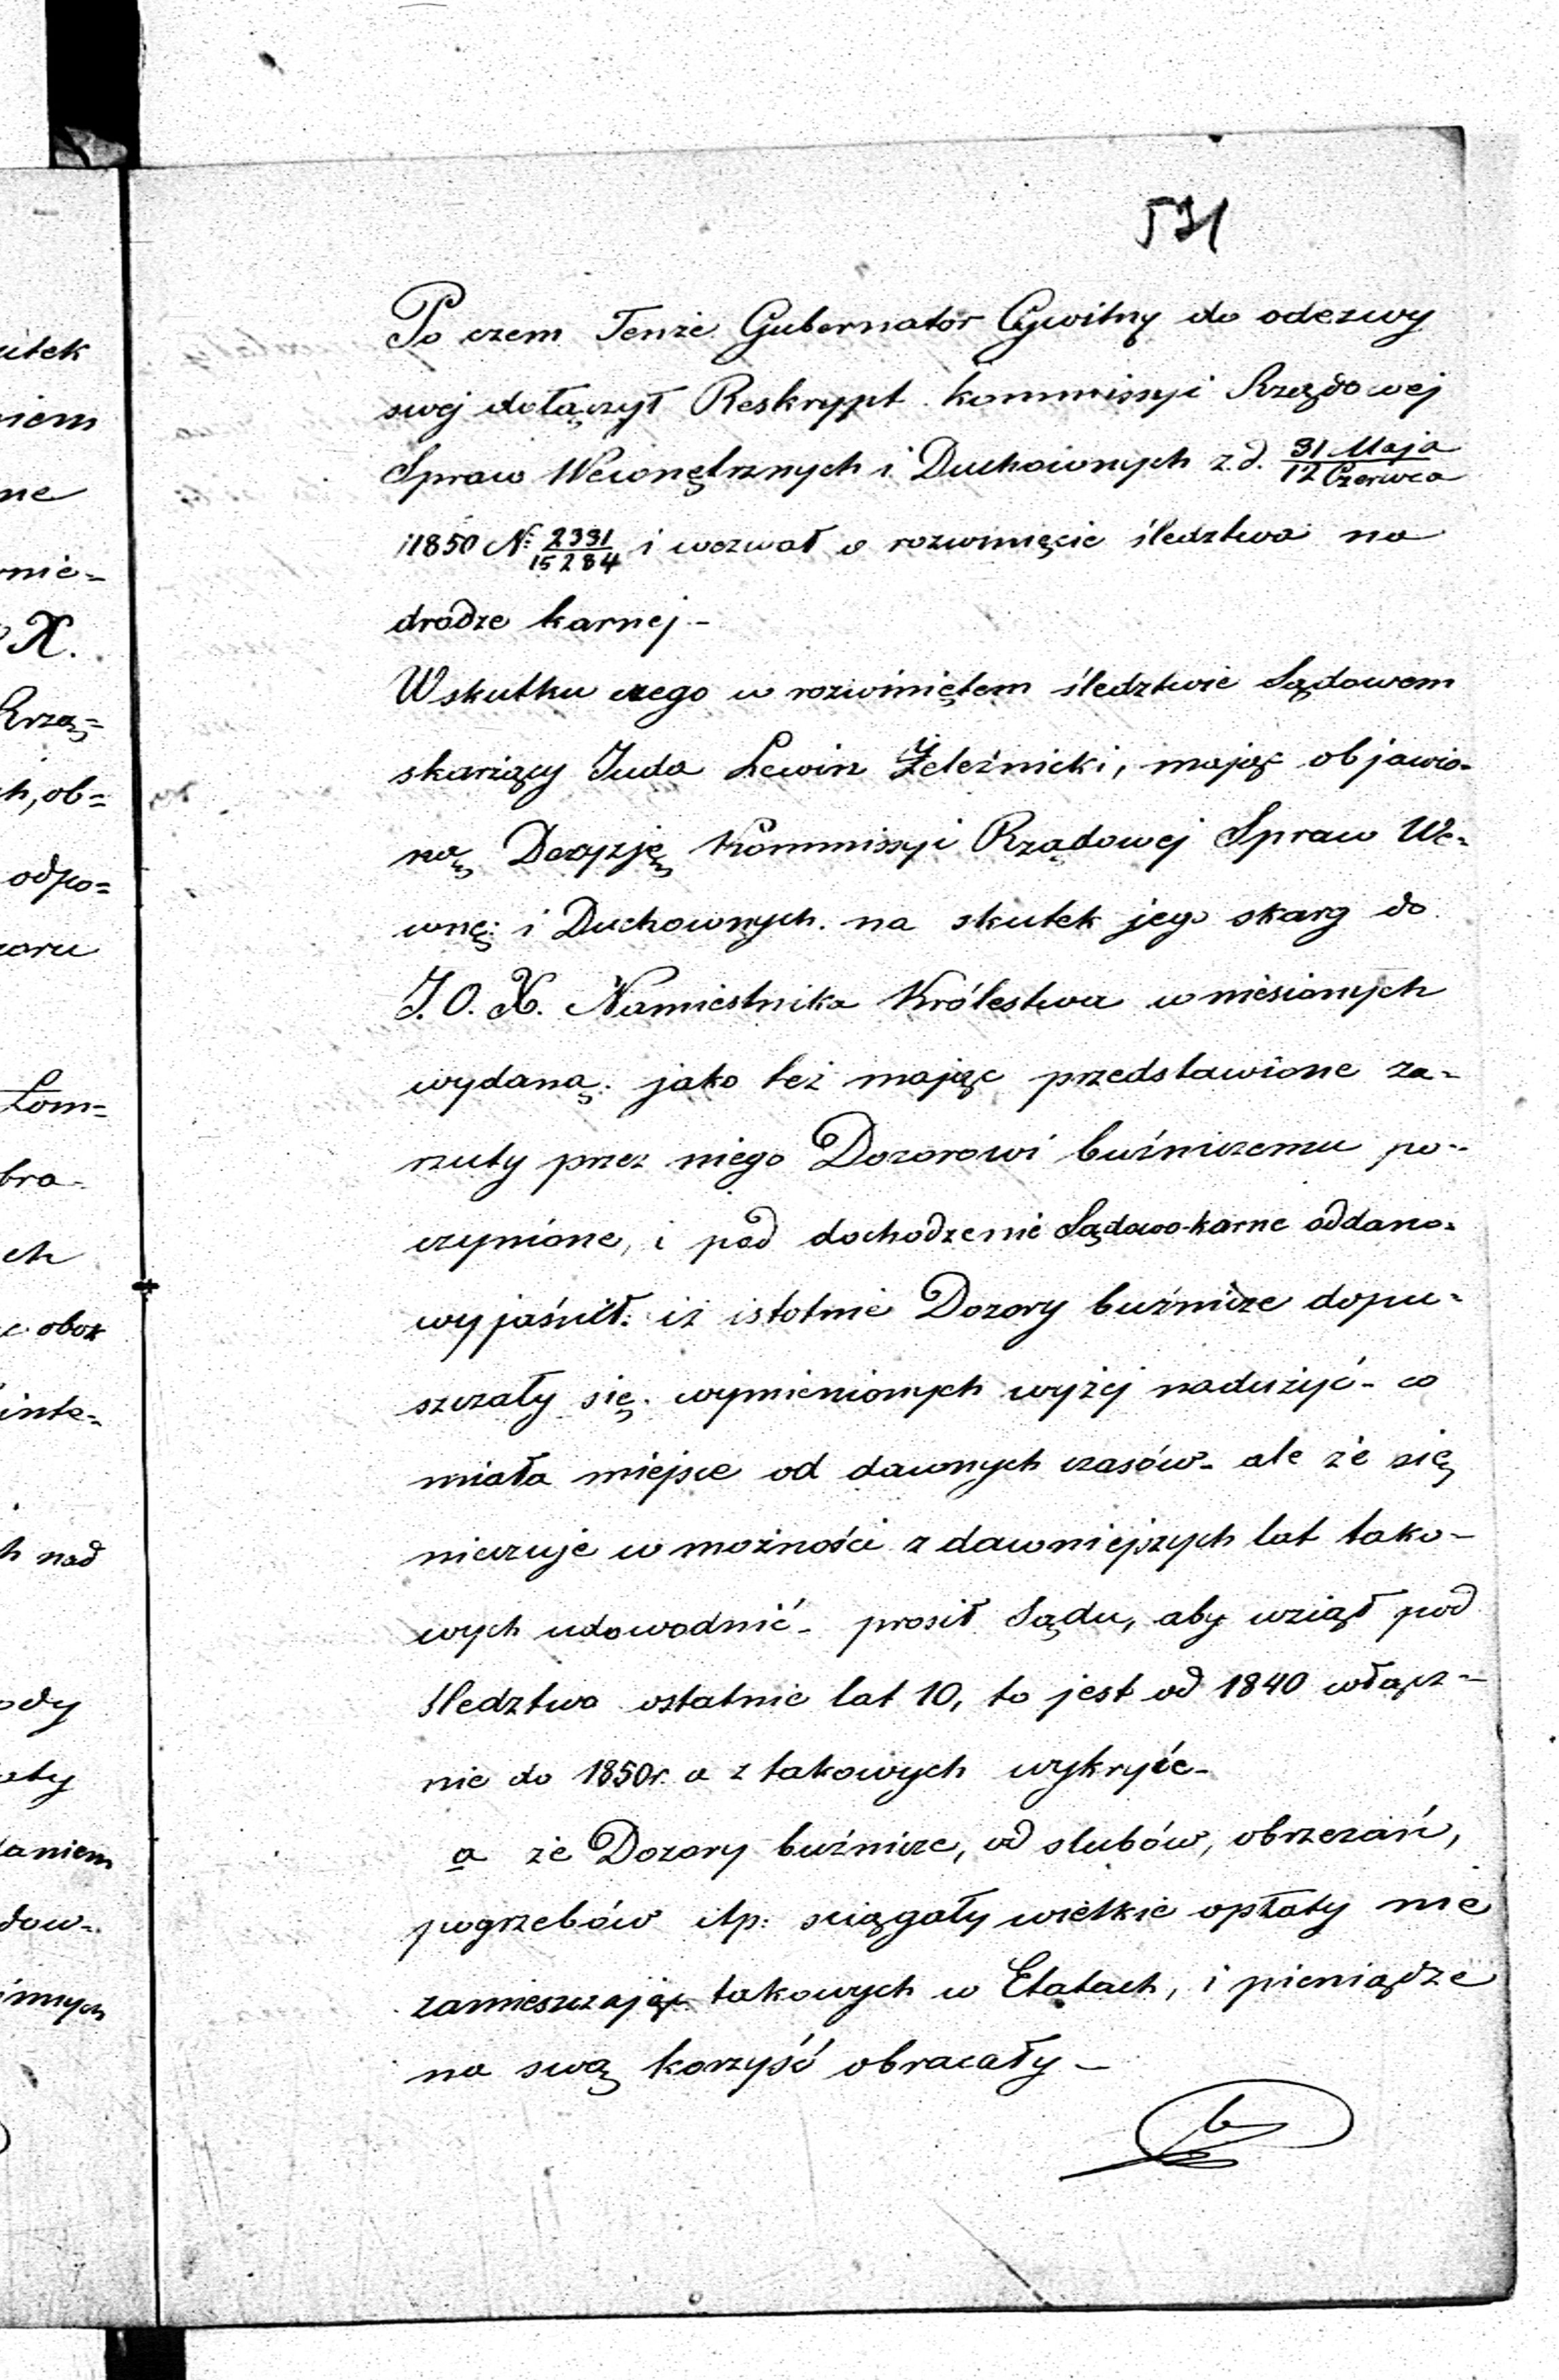 531
Po czem Tenże Gubernator Cywilny do odezwy
swej dołączył Reskrypt Kommissyi Rządowej
Spraw Wewnętrznych i Duchownych z.d. 31 Maja / 12 Czerwca
1850 N: 2331 / 15284 i wezwał o rozwinięcie śledztwa na
drodze karnej -
W skutku czego w rozwiniętem śledztwie Sądowem
skarżący Juda Lewin Żeleźnicki, mając objawio-
ną Decyzję Kommissyi Rządowej Spraw We-
wnę: i Duchownych. na skutek jego skarg do
J.O.X. Namiestnika Królestwa wniesionych
wydaną. jako też mając przedstawione za-
rzuty przez niego Dozorowi bużniczemu po-
czynione, i pod dochodzenie Sądowo-karne oddano-
wyjaśnił: iż istotnie Dozory bużnicze dopu-
szczały się. wymienionych wyżej nadużyć - co
miała miejsce od dawnych czasów - ale że się
nieczuje w możności z dawniejszych lat tako-
wych udowodnić - prosił Sądu, aby wziął pod
śledztwo ostatnie lat 10, to jest od 1840 włącz-
nie do 1850r. a z takowych wykryć -
a że Dozory bużnicze, od slubów, obrzezań,
pogrzebów itp: sciągały wielkie opłaty nie
zamieszczając takowych w Etatach, i pieniądze
na swą korzyść obracały -